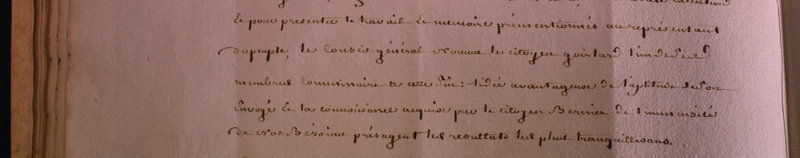 Et pour presenter le travail Et memoire prémentionnés au représentant
du peuple, le Conseil général Nomme le citoyen goirland l'un de ses
membres Commissaire a cette fin: l'idée avantageuse de l'aptitude de son
Envoyé Et la connoissance acquise par le citoyen Bernier de l'immensité
de nos Besoins présagent les resultats les plus tranquillisans.